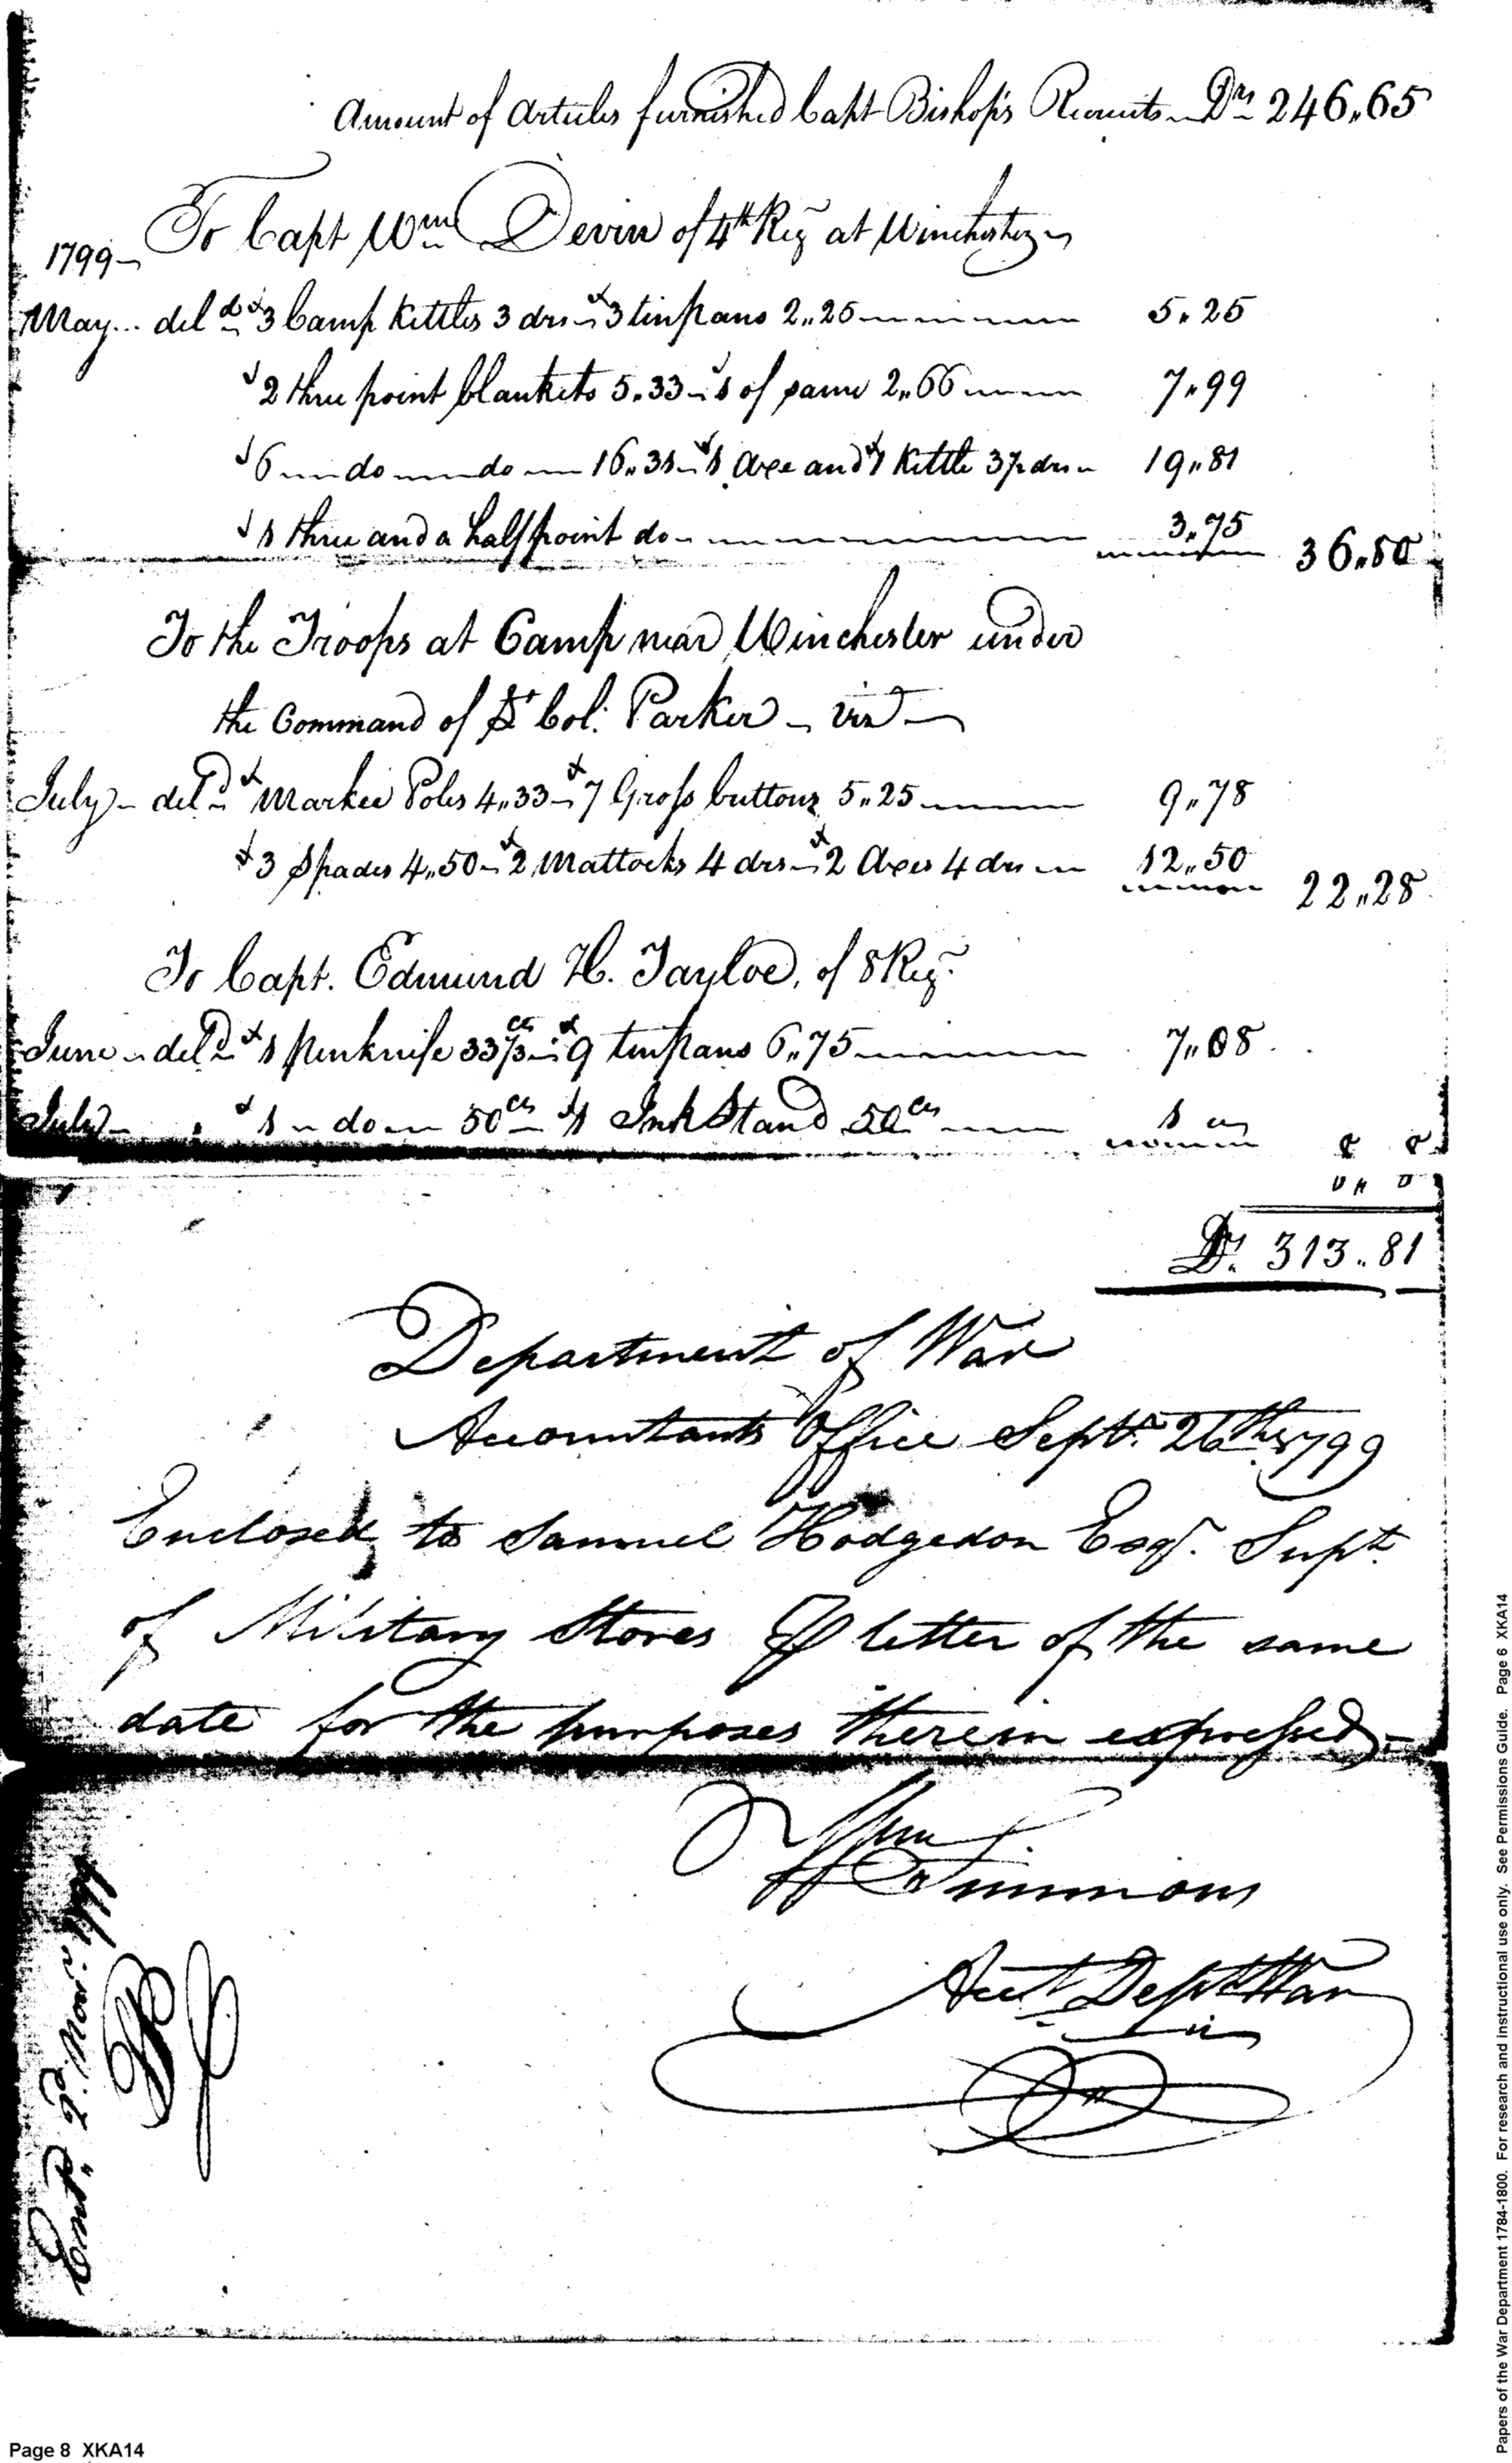 Amount of Articles furnished Capt Bishop's Recruits Drs 246.65
To Capt Wm Devin of 4th Reg at Winchester
1799
May... deld 3 Camp Kettles 3 drs 3 tinpans 2..25 5.25
2 three point blankets 5.33 1 of same 2.66 7.99
6 do do 16.31 1 Axe and 1 Kettle 3½ drs 19.81
1 three and a half point do 3.75 36.80
To the Troops at Camp near Winchester under
the Command of Lt Col: Parker viz
July deld Markee Poles 4.33 7 Gross buttons 5.25 9.78
3 Spades 4.50 2 Mattocks 4 drs 2 Axes 4 drs 12.50 22.28
To Capt. Edmund H. Tayloe, of 8 Reg.
June deld 1 penknife 33⅓ cts 9 tinpans 6.75 7.08
July 1 do 50 cts 1 Ink Stand 50 cts 1 8 8
Drs. 313..81
Department of War
Accountants Office Septr. 26th 1799
Enclosed to Samuel Hodgedon Esqr. Supt.
of Military Stores ⅌ letter of the same
date for the purposes therein expressed.
Wm Simmons
Acct Dept War
Entd. 2d. Novr. 1799
Page 8 XKA14
Papers of the War Department 1784-1800. For research and instructional use only. See Permissions Guide. Page 6 XKA14